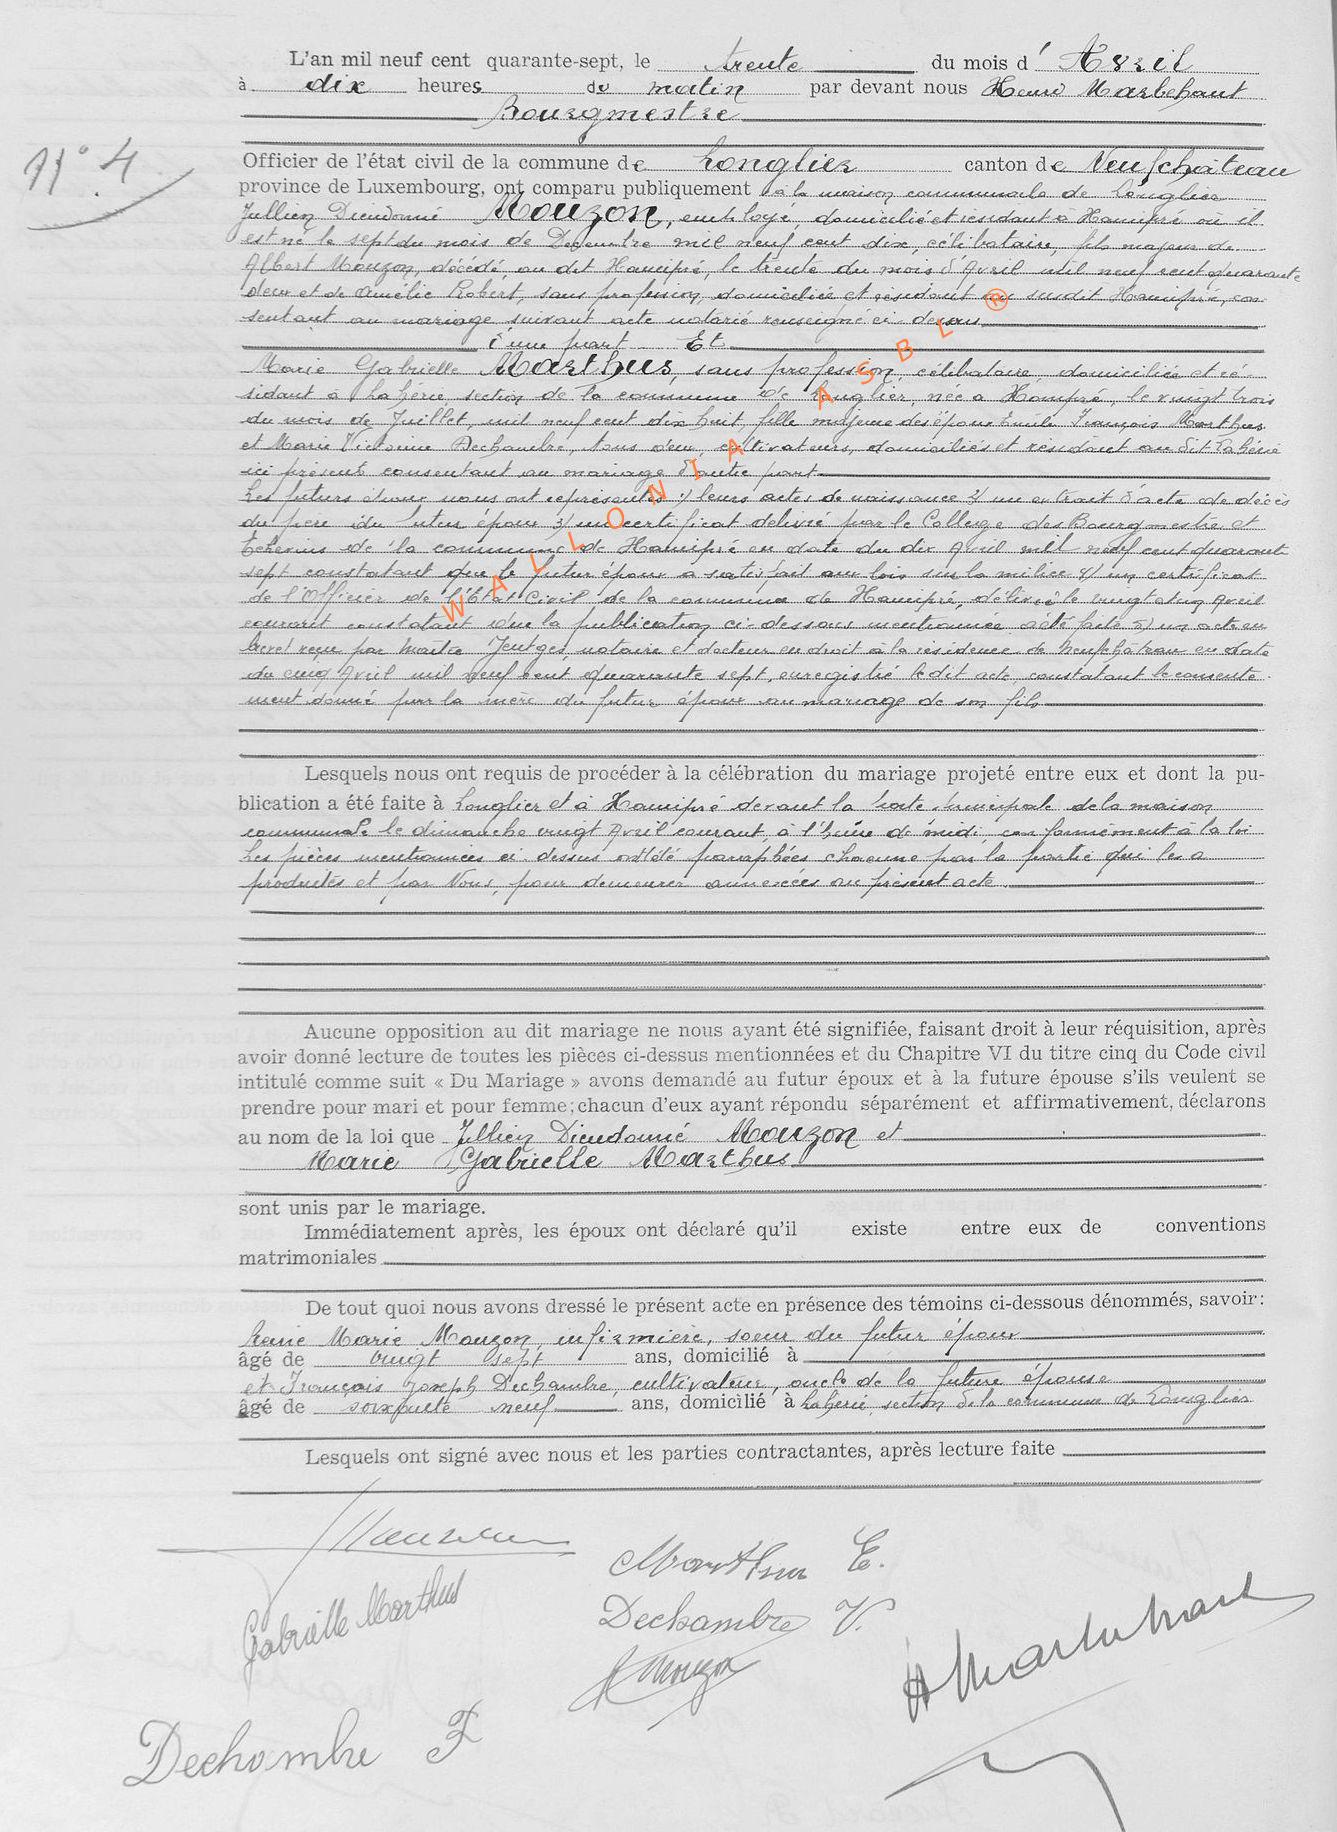 L'an mil neuf cent quarante-sept, le trente du mois d' Avril
à dix heures du matin par devant nous Henri Marbehant
Bourgmestre
N° 4
Officier de l'état civil de la commune de Longlier canton de Neufchâteau
province de Luxembourg, ont comparu publiquement à la maison communale de Longlier
Jullien Dieudonné Mouzon, employé, domicilié et résidant à Hamipré où il
est né le sept du mois de Décembre mil neuf cent dix, célibataire, fils majeur de
Albert Mouzon, décédé, au dit Hamipré, le trente du mois d'Avril mil neuf cent quarante
deux et de Amélie Robert, sans profession, domiciliée et résidant au susdit Hamipré, con
sentant au mariage suivant acte notarié renseigné ci-dessus
d'une part Et
Marie Gabrielle Marthus, sans profession, célibataire, domiciliée et ré-
sidant à Lahérie, section de la commune de Longlier, née à Hamipré, le vingt trois
du mois de Juillet, mil neuf cent dix huit, fille majeure des époux Emile François Marthus
et Marie Victorine Dechambre, tous deux, cultivateurs, domiciliés et résidant au dit Lahérie
ici présent consentant au mariage d'autre part
Les futurs époux nous ont représentés: 1/ leurs actes de naissance 2/ un extrait d'acte de décès
du père du futur époux 3/ un certificat délivré par le Collège des Bourgmestre et
Echevins de la commune de Hamipré en date du dix Avril mil neuf cent quarante
sept constatant que le futur époux a satisfait aux lois sur la milice 4/ un certificat
de l'Officier de l'Etat Civil de la commune de Hamipré, délivré le vingt Avril
courant constatant que la publication ci-dessous mentionnée a été faite 5/ un acte en
brevet reçu par Maître Jentges, notaire et docteur en droit à la résidence de Neufchâteau en date
du cinq Avril mil neuf cent quarante sept, enregistré le dit acte, constatant le consente
ment donné par la mère du futur époux au mariage de son fils
Lesquels nous ont requis de procéder à la célébration du mariage projeté entre eux et dont la pu-
blication a été faite à Longlier et à Hamipré devant la porte principale de la maison
communale le dimanche vingt Avril courant, à l'heure de midi, conformément à la loi
Les pièces mentionnées ci-dessus ont été paraphées chacune par la partie qui les a
produites et par Nous, pour demeurer annexées au présent acte.
Aucune opposition au dit mariage ne nous ayant été signifiée, faisant droit à leur réquisition, après
avoir donné lecture de toutes les pièces ci-dessus mentionnées et du Chapitre VI du titre cinq du Code civil
intitulé comme suit « Du Mariage » avons demandé au futur époux et à la future épouse s'ils veulent se
prendre pour mari et pour femme; chacun d'eux ayant répondu séparément et affirmativement, déclarons
au nom de la loi que Jullien Dieudonné Mouzon et
Marie Gabrielle Marthus
sont unis par le mariage.
Immédiatement après, les époux ont déclaré qu'il existe entre eux de conventions
matrimoniales
De tout quoi nous avons dressé le présent acte en présence des témoins ci-dessous dénommés, savoir:
Marie Mouzon, infirmière, soeur du futur époux
âgé de vingt sept ans, domicilié à
et François Joseph Dechambre, cultivateur, oncle de la future épouse
âgé de soixante neuf ans, domicilié à Lahérie section de la commune de Longlier
Lesquels ont signé avec nous et les parties contractantes, après lecture faite
Mouzon
Marthus E.
Gabrielle Marthus
Dechambre V.
Mouzon
H Marbehant
Dechambre F
WALLONIA ASBL ®